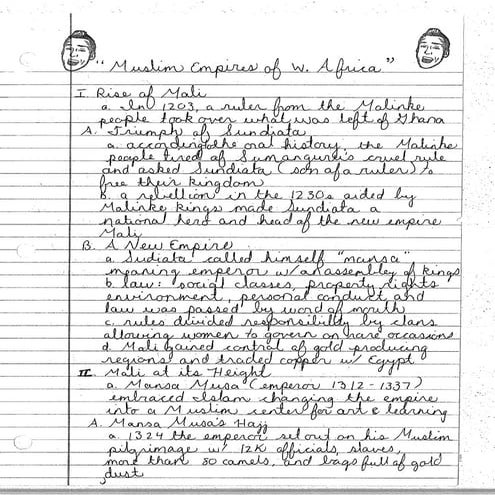 "Muslim Empires of W. Africa"
I. Rise of Mali
a. In 1203, a ruler from the Malinke
people took over what was left of Ghana
A. Triumph of Sundiata
a. according the oral history, the Malinke
people tired of Sumanguru's cruel rule
and asked Sundiata (son of a ruler) to
free their kingdom
b. a rebellion in the 1230s aided by
Malinke kings made Sundiata a
national hero and head of the new empire
Mali
B. A New Empire
a. Sudiata called himself "mansa"
meaning emperor w/ an assembly of kings
b. law: social classes, property rights
environment, personal conduct and
law was passed by word of mouth
c. rules divided responsibility by clans
allowing women to govern on rare occasions
d. Mali gained control of gold producing
regions and traded copper w/ Egypt
II. Mali at its Height
a. Mansa Musa (emperor 1312-1337)
embraced Islam changing the empire
into a Muslim center for art & learning
A. Mansa Musa's Hajj
a. 1324 the emperor set out on his Muslim
pilgrimage w/ 12K officials, slaves,
more than 80 camels, and bags full of gold
dust